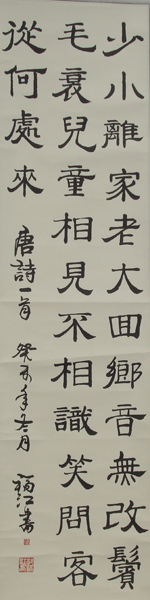 少小離家老大囬鄉音無改鬢
毛衰兒童相見不相識笑問客
從何處來
唐詩一首 年冬月 江書